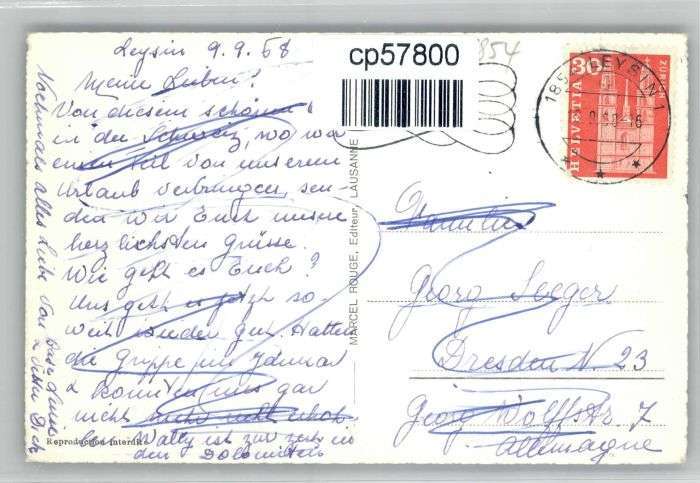 Leysin 9.9.68
Meine Lieben!
Von diesem schönen
in der Schweiz, wo wir
einen Teil von unserem
Urlaub verbringen, sen-
den wir Euch unsere
herzlichsten Grüsse.
Wie geht es Euch?
Uns geht es jetzt so-
weit wieder gut. Hatten
die Grippe im Januar
& konnten uns gar
nicht mehr recht erhol-
Wally ist zur Zeit in
den Dolomiten
Nochmals alles Liebe von Euer
& Dich
Reproduction interdite
MARCEL ROUGE, Editeur, LAUSANNE
cp57800
1854
1854 LEYSIN 1
30
HELVETIA
ZÜRICH
Familie
Georg Seeger
Dresden N 23
Georg Wolffstr. 7
Allemagne